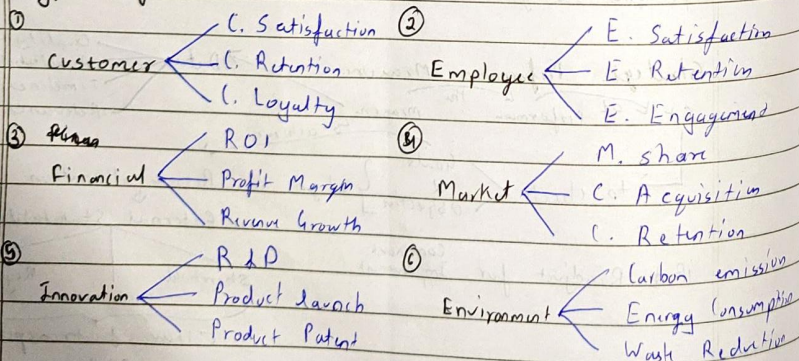 ① Customer
C. Satisfaction
C. Retention
C. Loyalty
② Employee
E. Satisfaction
E. Retention
E. Engagement
③ Financial
ROI
Profit Margin
Revenue Growth
④ Market
M. share
C. Acquisition
C. Retention
⑤ Innovation
R & D
Product launch
Product Patent
⑥ Environment
Carbon emission
Energy Consumption
Waste Reduction